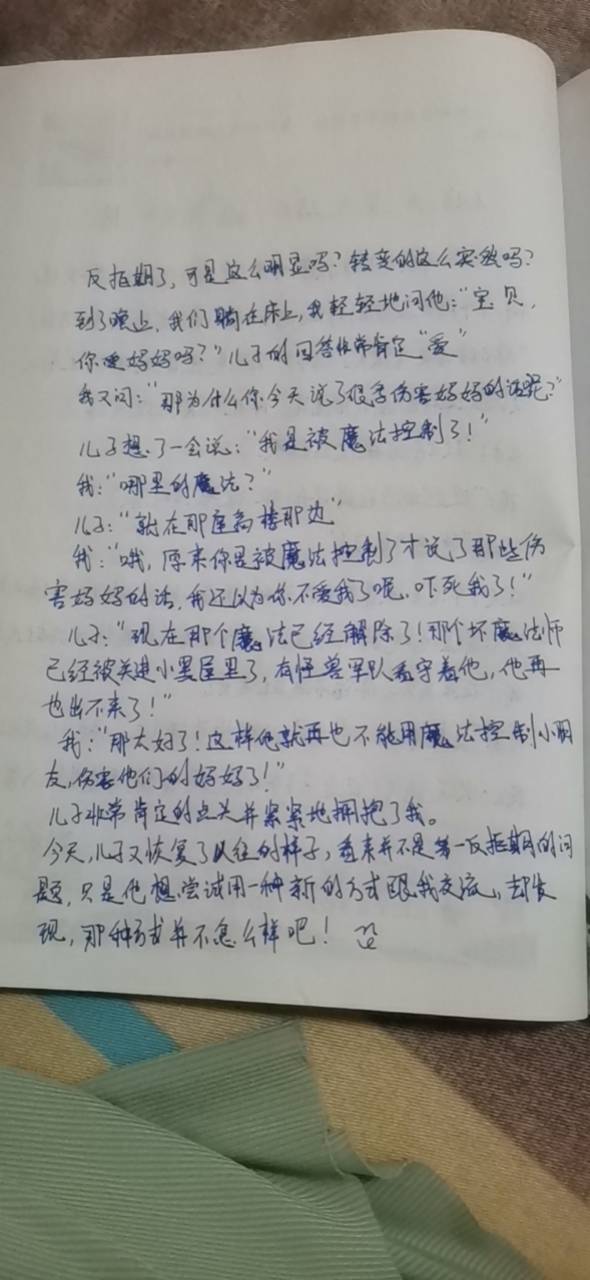 反抗期了，可是这么明显吗？转变的这么突然吗？
到了晚上，我们躺在床上，我轻轻地问他：“宝贝，
你爱妈妈吗？”儿子的回答非常肯定“爱”
我又问：“那为什么你今天说了很多伤害妈妈的话呢？”
儿子想了一会说：“我是被魔法控制了！”
我：“哪里的魔法？”
儿子：“就在那座高楼那边”
我：“哦，原来你是被魔法控制了才说了那些伤
害妈妈的话，我还以为你不爱我了呢，吓死我了！”
儿子：“现在那个魔法已经解除了！那个坏魔法师
已经被关进小黑屋里了，有怪兽军队看守着他，他再
也出不来了！”
我：“那太好了！这样他就再也不能用魔法控制小朋
友，伤害他们的妈妈了！”
儿子非常肯定的点头并紧紧地拥抱了我。
今天，儿子又恢复了以往的样子，看来并不是第一反抗期的问
题，只是他想尝试用一种新的方式跟我交流，却发
现，那种方式并不怎么样吧！